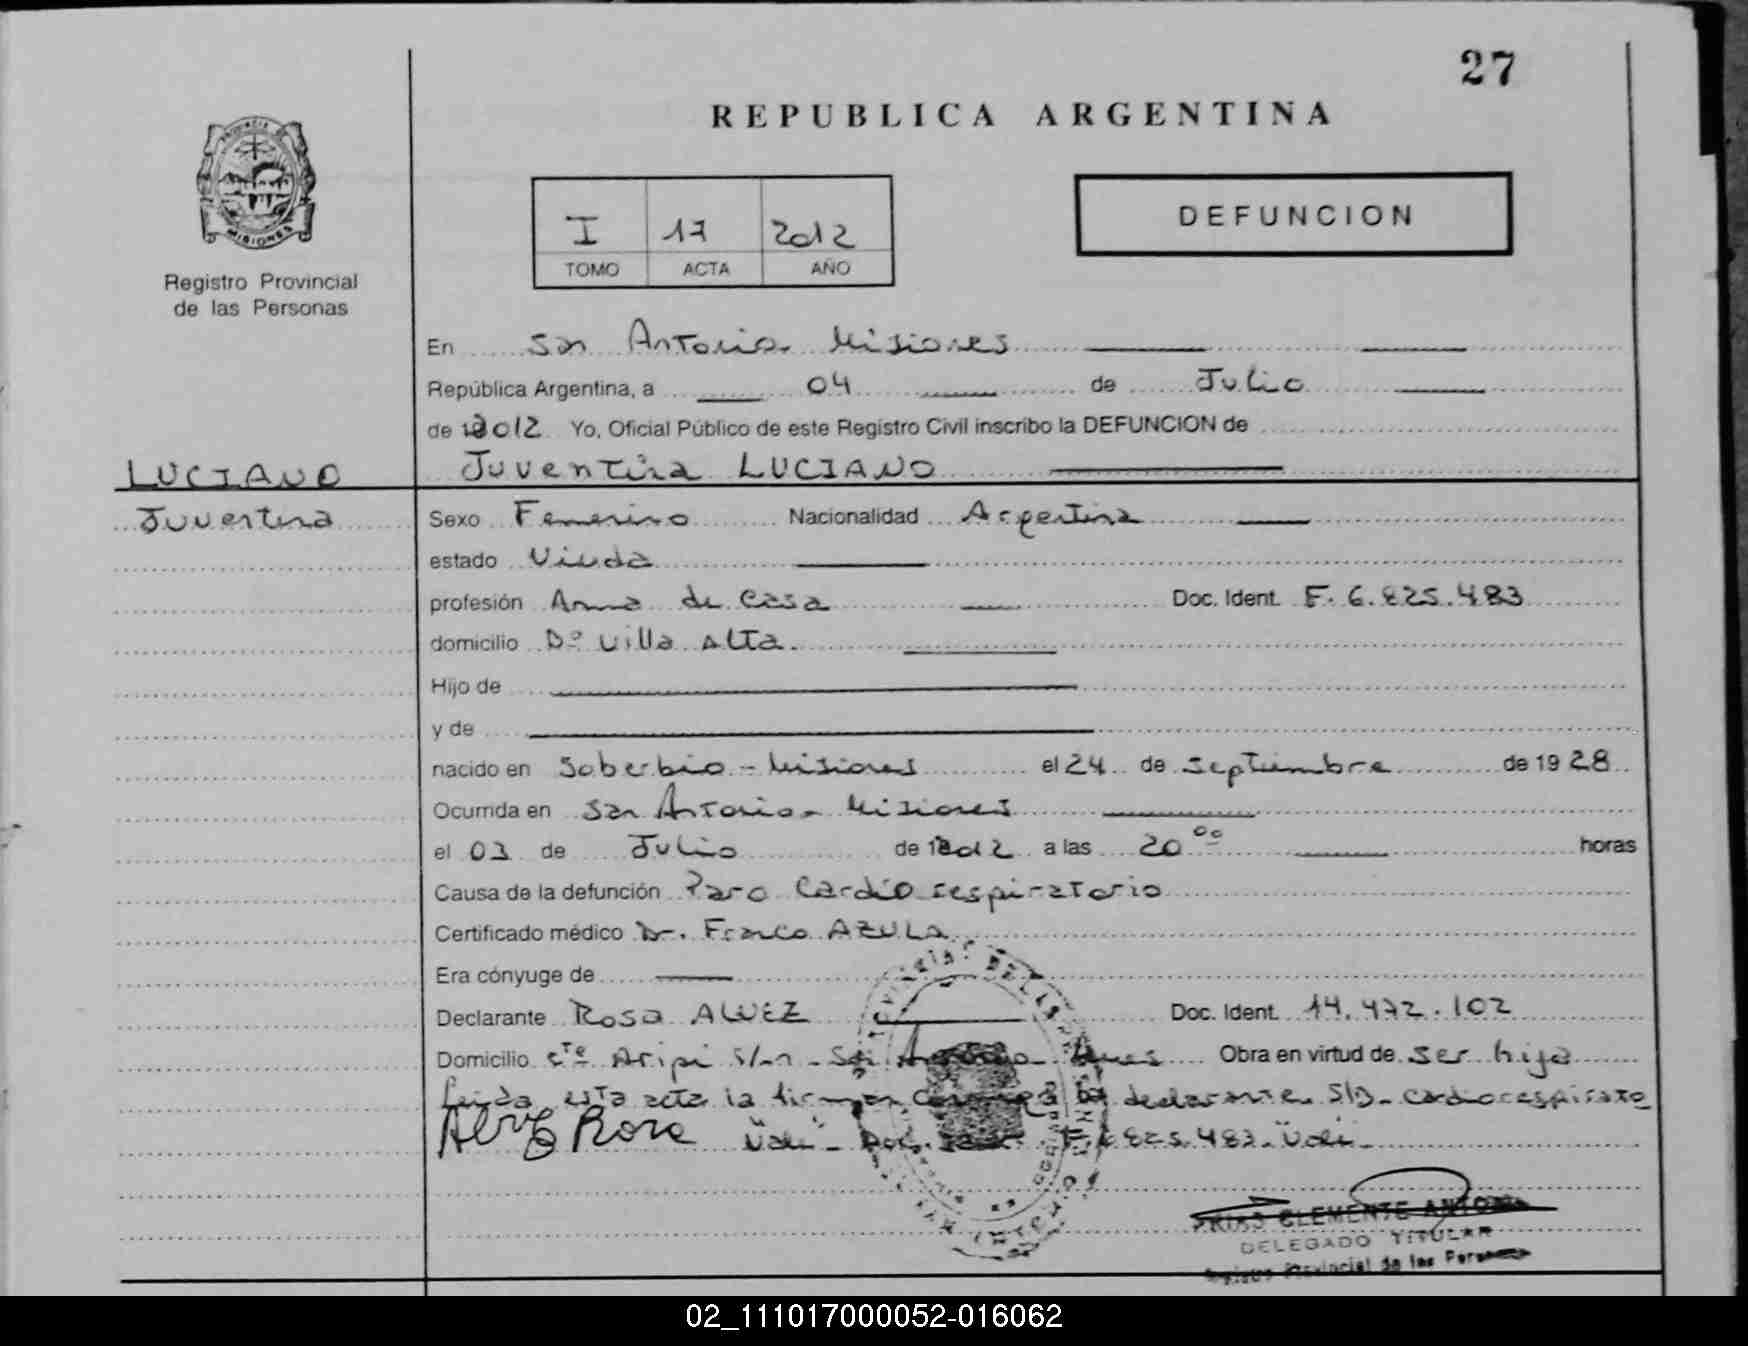 27
REPUBLICA ARGENTINA
PROVINCIA DE
MISIONES
Registro Provincial
de las Personas
I 17 2012
TOMO ACTA AÑO
DEFUNCION
En San Antonio - Misiones
República Argentina, a 04 de Julio
de 2012 Yo, Oficial Público de este Registro Civil inscribo la DEFUNCION de
LUCIANO Juventina LUCIANO
Juventina Sexo Femenino Nacionalidad Argentina
estado Viuda
profesión Ama de Casa Doc. Ident. F. 6.825.483
domicilio Bº Villa Alta.
Hijo de
y de
nacido en Soberbio - Misiones el 24 de Septiembre de 1928
Ocurrida en San Antonio - Misiones
el 03 de Julio de 2012 a las 20 00 horas
Causa de la defunción Paro Cardio respiratorio
Certificado médico Dr. Franco AZULA
Era cónyuge de
Declarante Rosa ALVEZ Doc. Ident. 14.472.102
Domicilio Aripi s/n - San Antonio Obra en virtud de ser hija
leida esta acta la firman declarante S/B- cardiorespirato
Alvez Rosa Vale - Doc. 6.825.483. Vale -
FRIAS CLEMENTE ANTONIO
DELEGADO TITULAR
Registro Provincial de las Personas
02_111017000052-016062